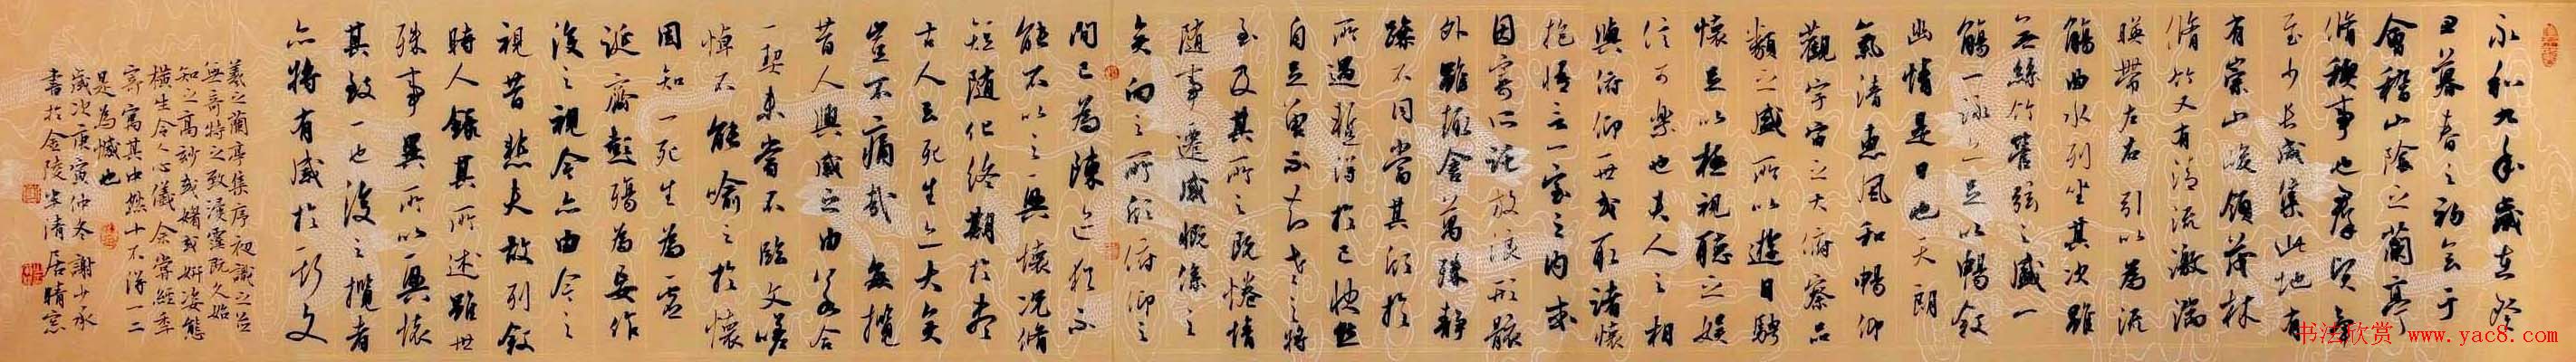 永和九年歲在癸
丑暮春之初會于
會稽山陰之蘭亭
脩稧事也群賢畢
至少長咸集此地有
有崇山峻領茂林
脩竹又有清流激湍
暎帶左右引以為流
觴曲水列坐其次雖
無絲竹管弦之盛一
觴一詠亦足以暢敘
幽情是日也天朗
氣清惠風和暢仰
觀宇宙之大俯察品
類之盛所以遊目騁
懷足以極視聽之娛
信可樂也夫人之相
與俯仰一世或取諸懷
抱悟言一室之內或
因寄所託放浪形骸
外雖趣舍萬殊靜
躁不同當其欣於
所遇暫得於己快然
自足曾不知老之將
至及其所之既惓情
隨事遷感慨係之
矣向之所欣俯仰之
間已為陳迹猶不
能不以之興懷況脩
短隨化終期於盡
古人云死生亦大矣
豈不痛哉每攬
昔人興感之由若合
一契未嘗不臨文嗟
悼不能喻之於懷
固知一死生為虛
誕齊彭殤為妄作
後之視今亦由今之
視昔悲夫故列敘
時人錄其所述雖世
殊事異所以興懷
其致一也後之攬者
亦將有感於斯文
羲之蘭亭集序初識之並
無奇特之致浸霪既久始
知之高妙或媚或妍姿態
橫生令人心儀余嘗經年
寄寓其中然十不得一二
是為憾也
歲次庚寅仲冬謝少承
書於金陵半清居晴窗
书法欣赏 www.yac8.com